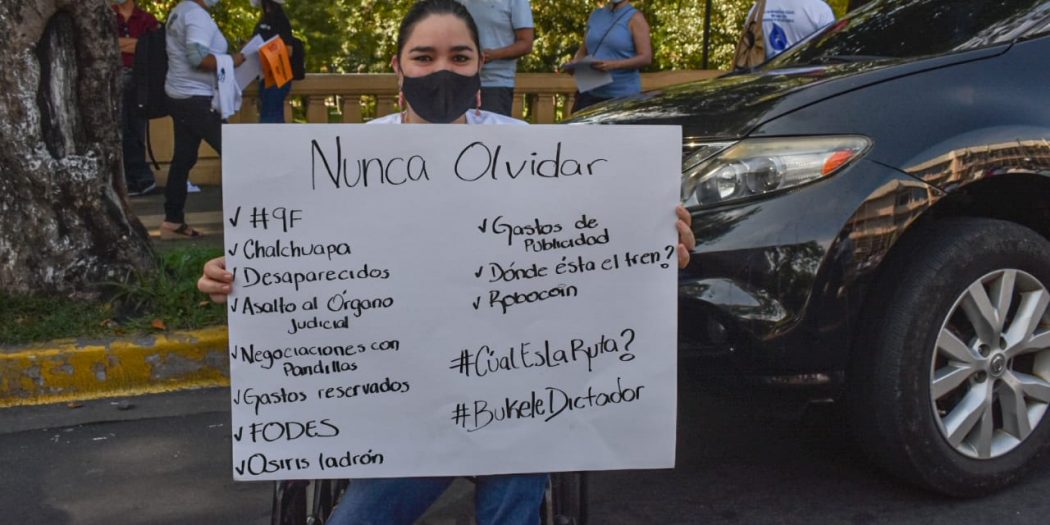 Nunca Olvidar
✓ #9F
✓ Chalchuapa
✓ Desaparecidos
✓ Asalto al Órgano
Judicial
✓ Negociaciones con
Pandillas
✓ Gastos reservados
✓ FODES
✓ Osiris ladrón
✓ Gastos de
Publicidad
✓ Dónde ésta el tren?
✓ Robocoin
#CúalEsLaRuta?
#BukeleDictador